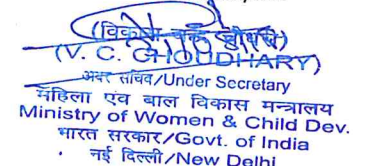 (V. C. CHOUDHARY)
अवर सचिव/Under Secretary
महिला एवं बाल विकास मन्त्रालय
Ministry of Women & Child Dev.
भारत सरकार/Govt. of India
नई दिल्ली/New Delhi